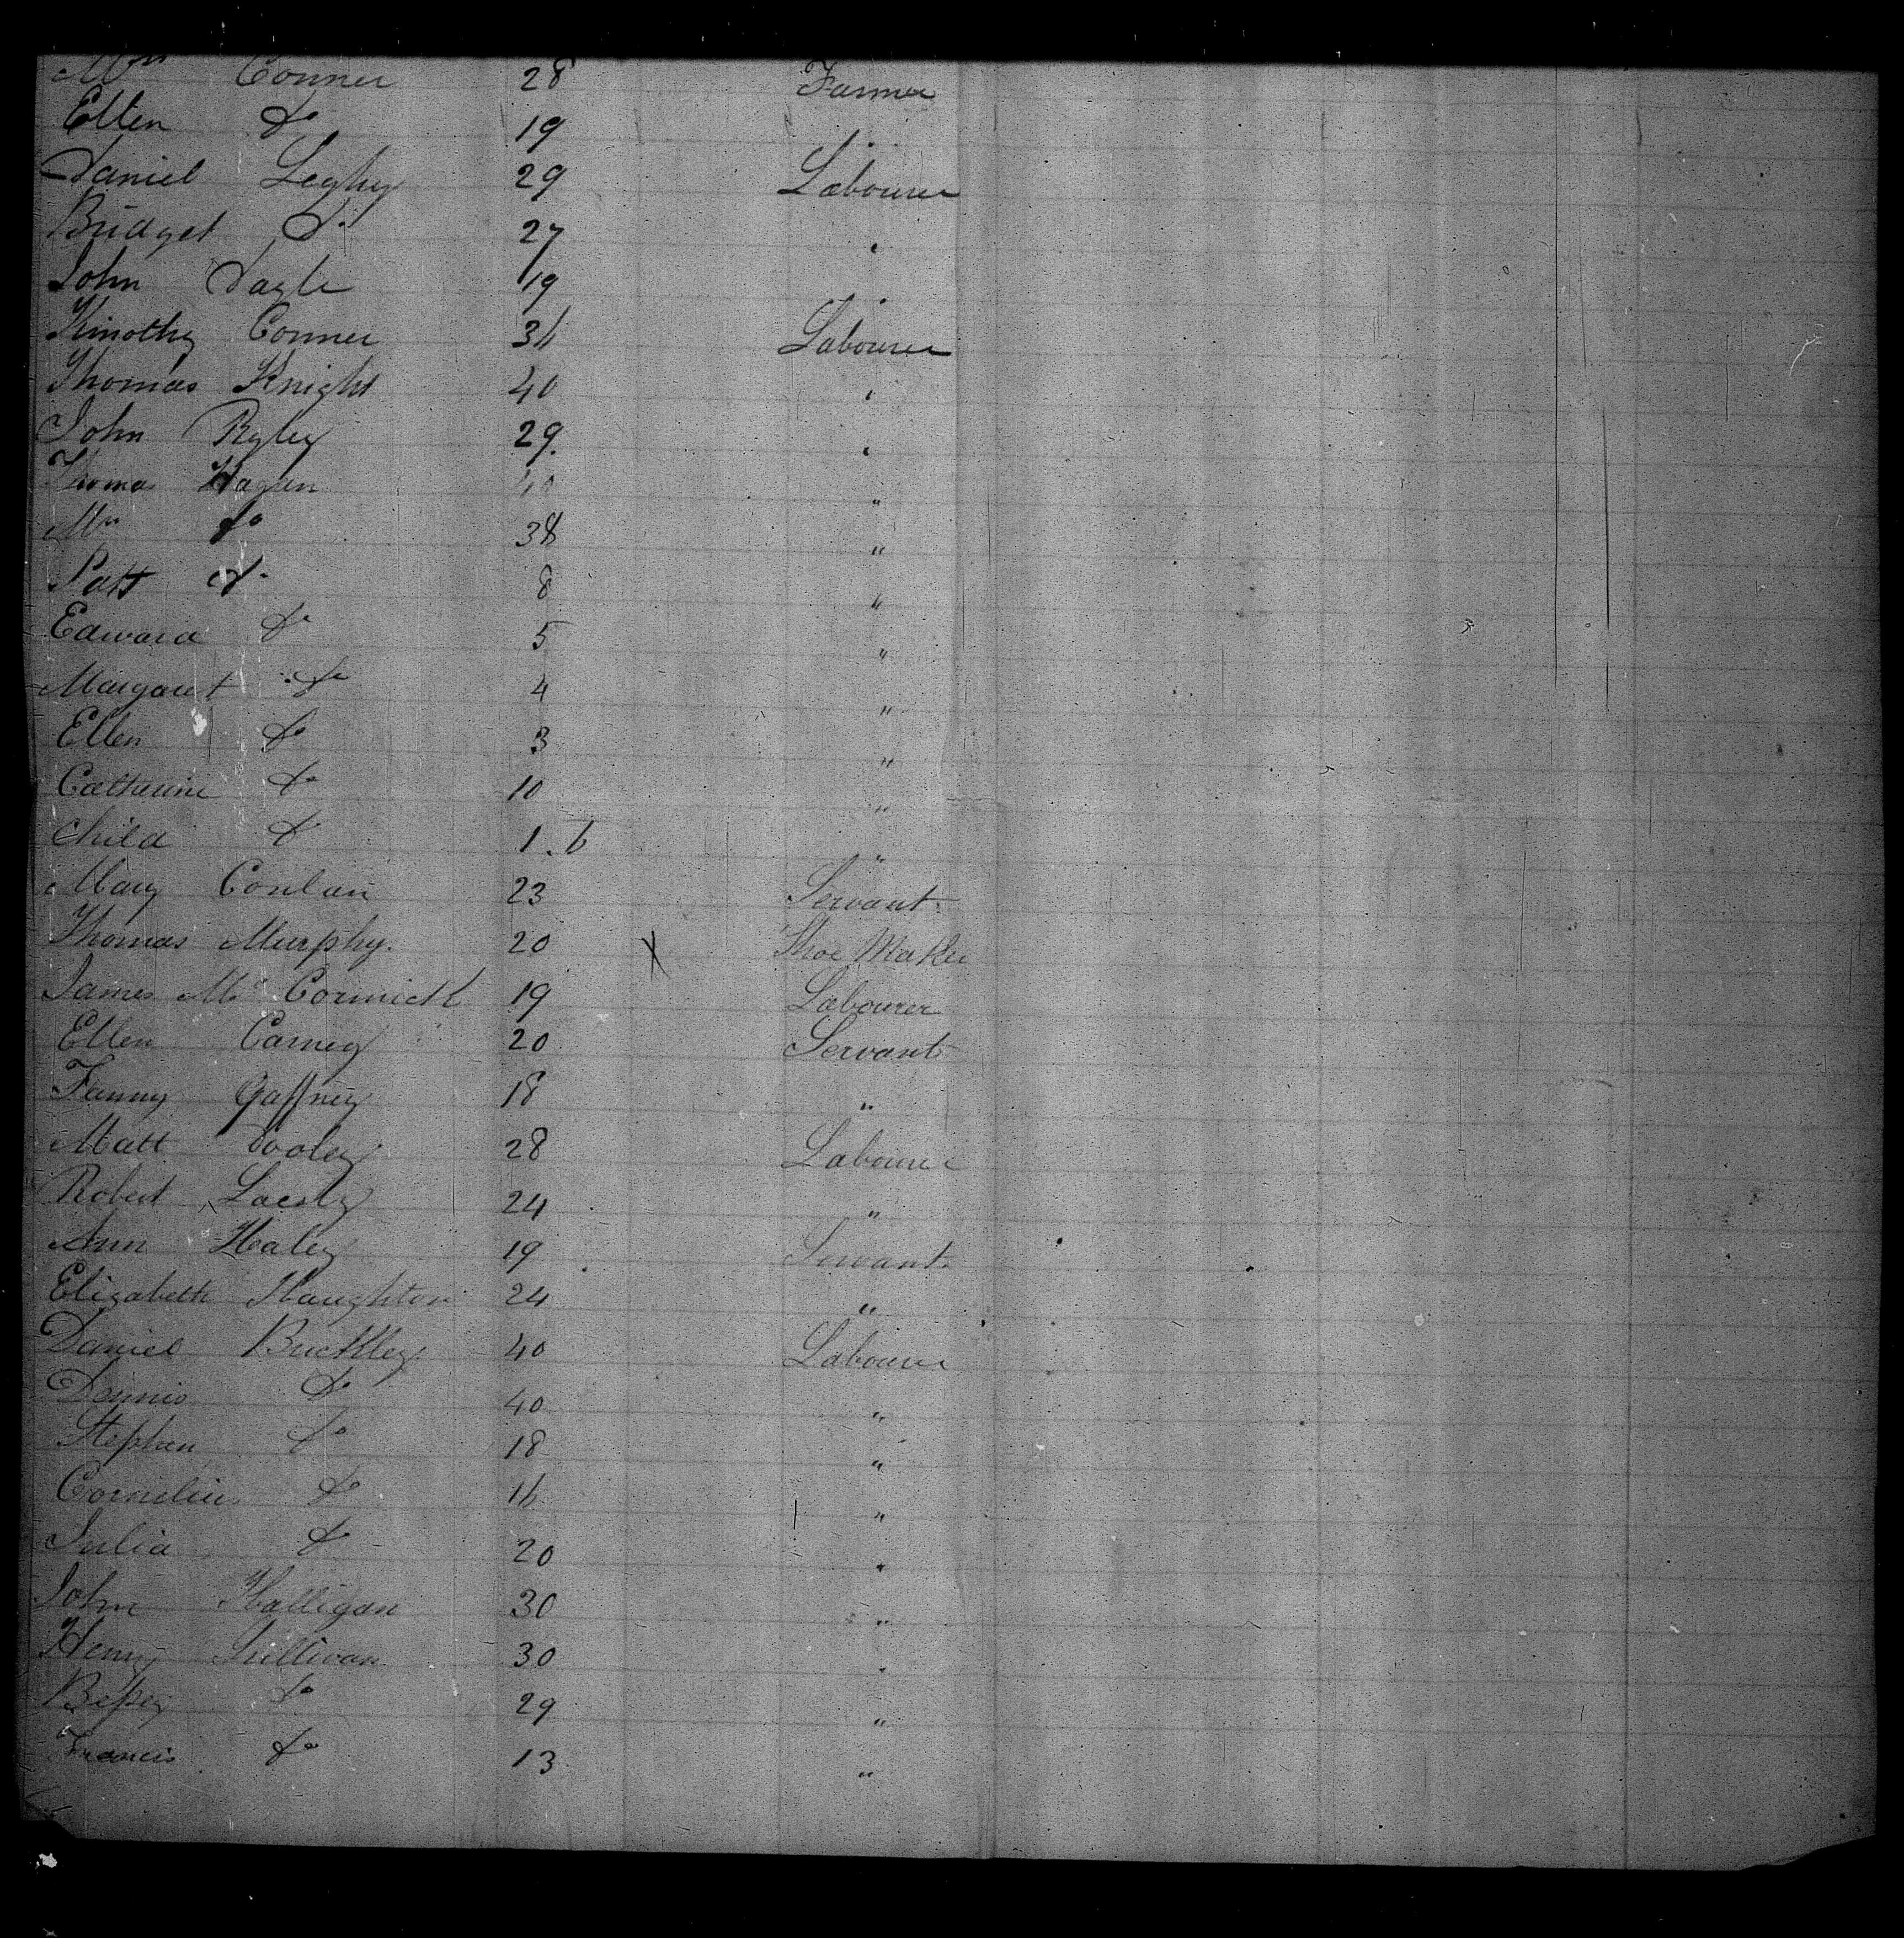 Wm Conner 28 Farmer
Ellen Do 19 "
Daniel Leghy 29 Labourer
Bridget Do 27 "
John Dayle 19 "
Timothy Conner 36 Labourer
Thomas Knight 40 "
John Ryley 29. "
Thomas Hagan 40 "
Mrs Do 38 "
Patt Do 8 "
Edward Do 5 "
Margaret Do 4 "
Ellen Do 3 "
Catherine Do 10 "
Child Do 1.6 "
Mary Conlan 23 Servant
Thomas Murphy. 20 X Shoe Maker
James Mc Cormick 19 Labourer
Ellen Carney 20 Servant
Fanny Gaffney 18 "
Matt Dooley 28 Labourer
Robert 24 "
Ann Haley 19 Servant
Elizabeth Haughton 24 "
Daniel Buckley 40 Labourer
Dennis Do 40 "
Stephen Do 18 "
Cornelius Do 16 "
Julia Do 20 "
John Halligan 30 "
Henry Sullivan 30 "
Bessey Do 29 "
Francis Do 13 "